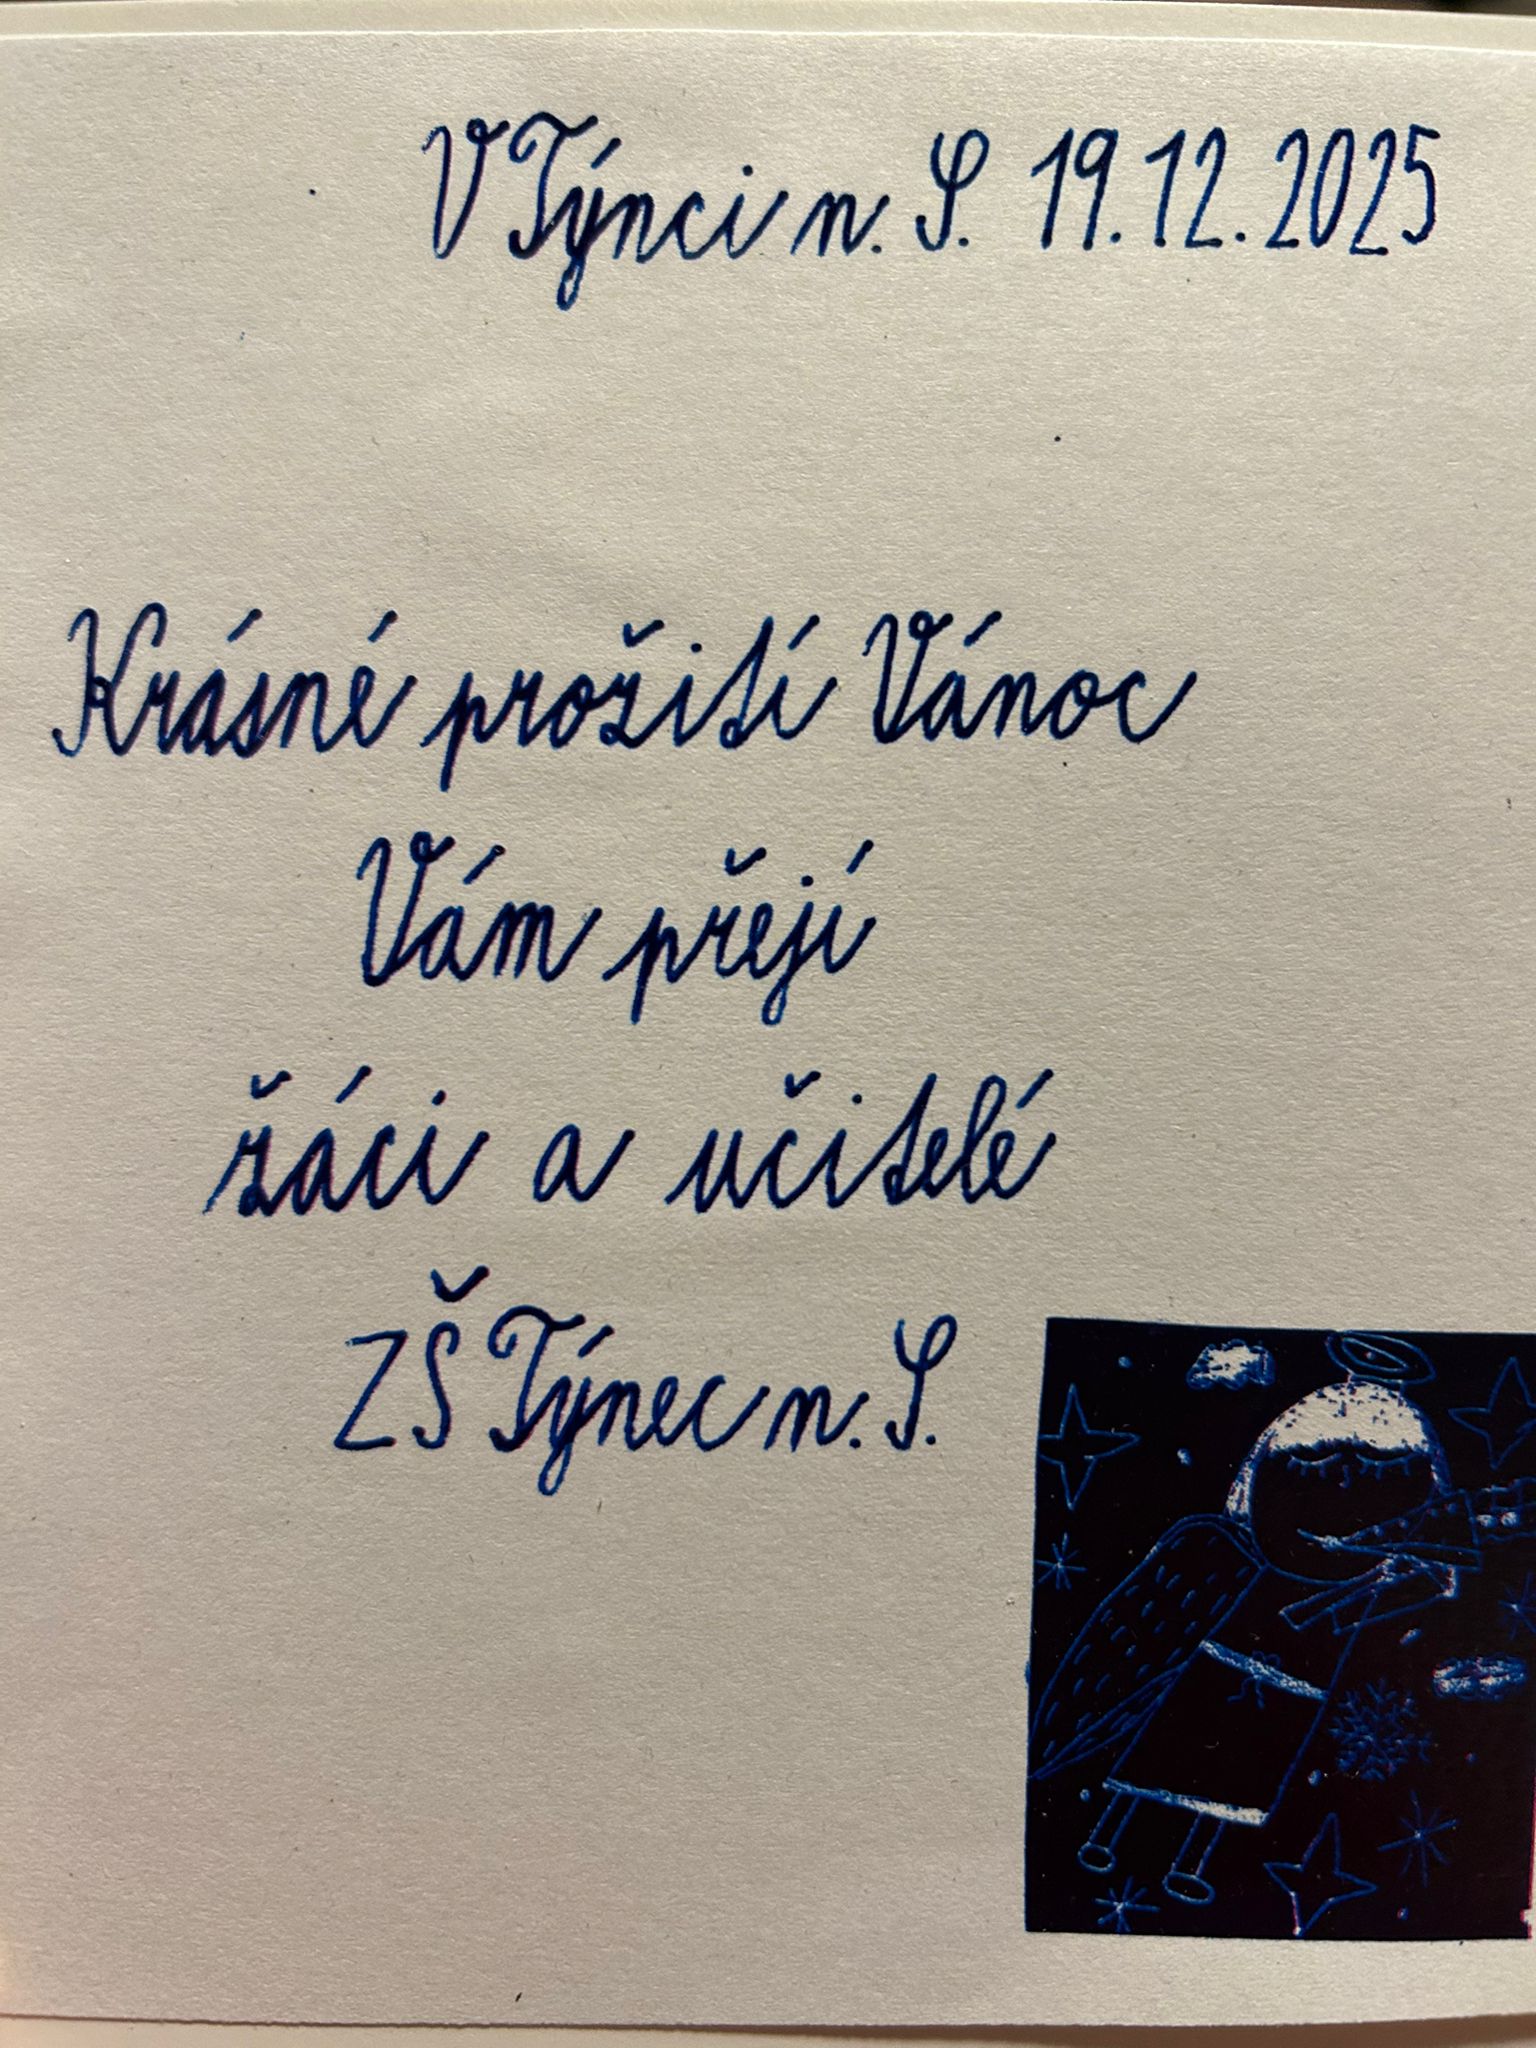 V Týnci n. S. 19.12.2025
Krásné prožití Vánoc
Vám přejí
žáci a učitelé
ZŠ Týnec n. S.